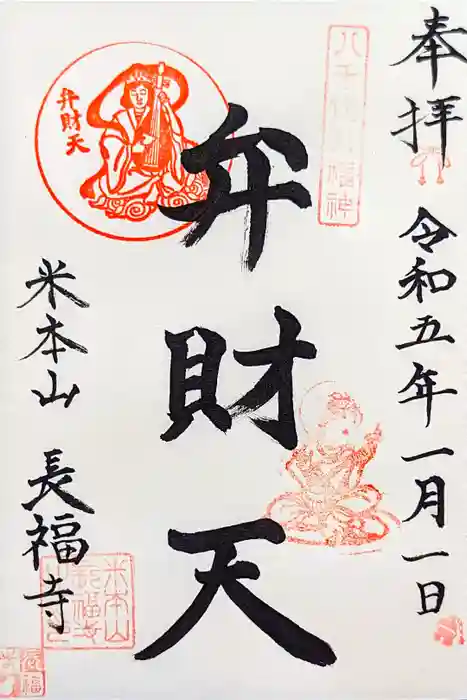 奉拝
令和五年一月一日
弁財天
弁財天
米本山 長福寺
米本山
長福寺